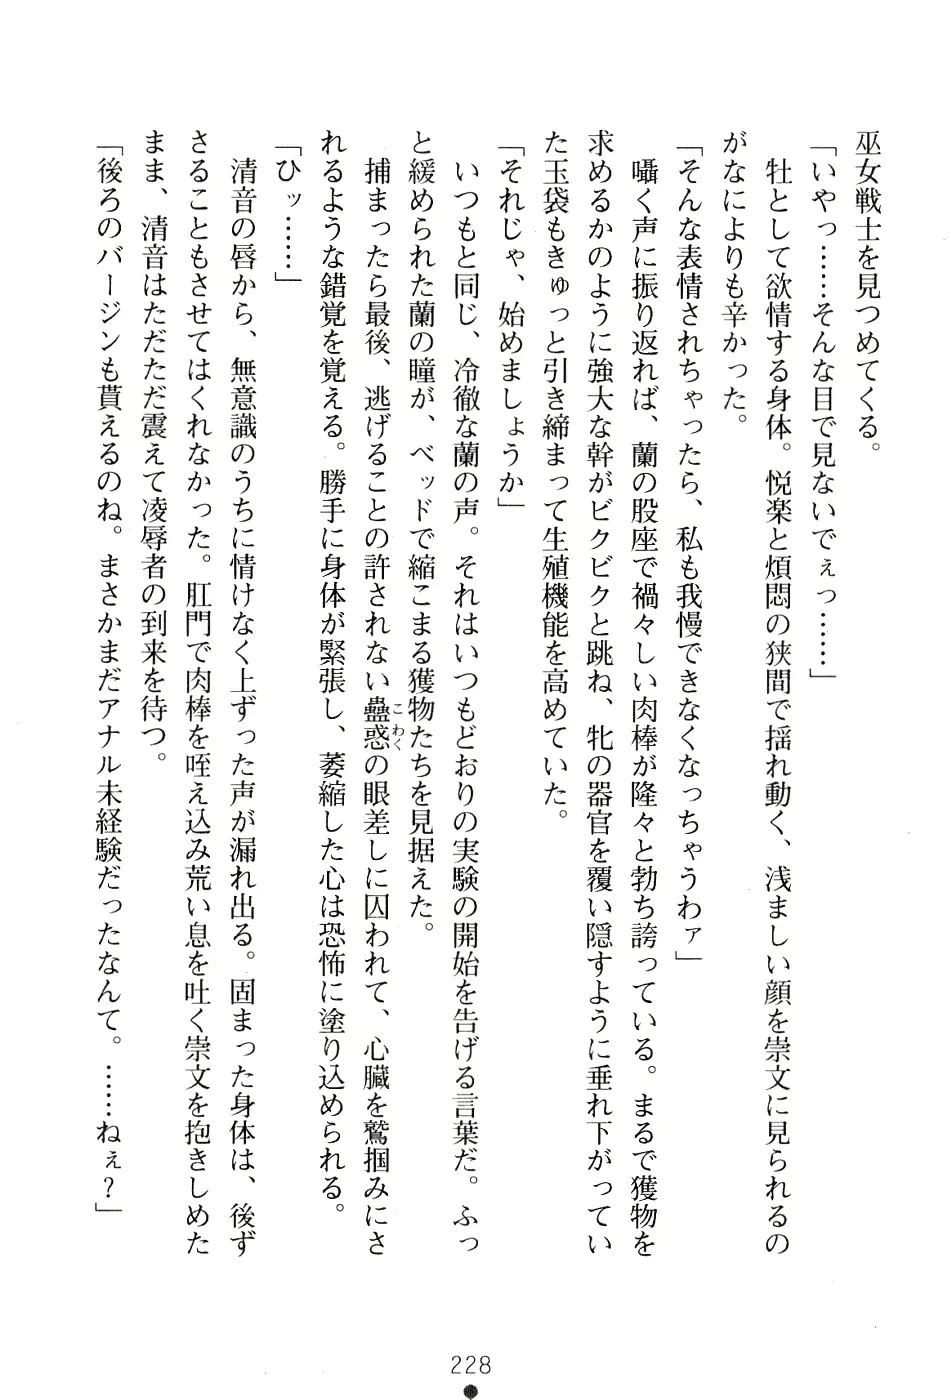 巫女戦士を見つめてくる。
「いやっ……そんな目で見ないでぇっ……」
牡として欲情する身体。悦楽と煩悶の狭間で揺れ動く、浅ましい顔を崇文に見られるの
がなによりも辛かった。
「そんな表情されちゃったら、私も我慢できなくなっちゃうわァ」
囁く声に振り返れば、蘭の股座で禍々しい肉棒が隆々と勃ち誇っている。まるで獲物を
求めるかのように強大な幹がビクビクと跳ね、牝の器官を覆い隠すように垂れ下がってい
た玉袋もきゅっと引き締まって生殖機能を高めていた。
「それじゃ、始めましょうか」
いつもと同じ、冷徹な蘭の声。それはいつもどおりの実験の開始を告げる言葉だ。ふっ
と緩められた蘭の瞳が、ベッドで縮こまる獲物たちを見据えた。
捕まったら最後、逃げることの許されない蠱惑こわくの眼差しに囚われて、心臓を鷲掴みにさ
れるような錯覚を覚える。勝手に身体が緊張し、萎縮した心は恐怖に塗り込められる。
「ひッ……」
清音の唇から、無意識のうちに情けなく上ずった声が漏れ出る。固まった身体は、後ず
さることもさせてはくれなかった。肛門で肉棒を咥え込み荒い息を吐く崇文を抱きしめた
まま、清音はただただ震えて凌辱者の到来を待つ。
「後ろのバージンも貰えるのね。まさかまだアナル未経験だったなんて。……ねぇ？」
228